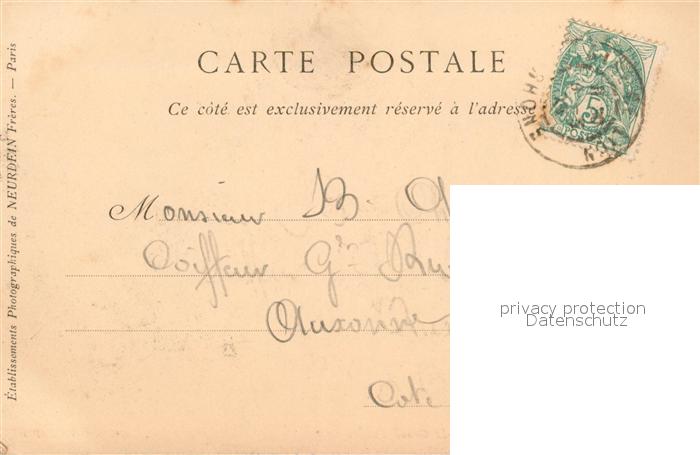 CARTE POSTALE
Ce côté est exclusivement réservé à l'adresse
5c
POSTES
RHONE
Monsieur B.
Coiffeur Gde Rue
Auxonne
Cote
Établissements Photographiques de NEURDEIN Frères. — Paris
privacy protection
Datenschutz